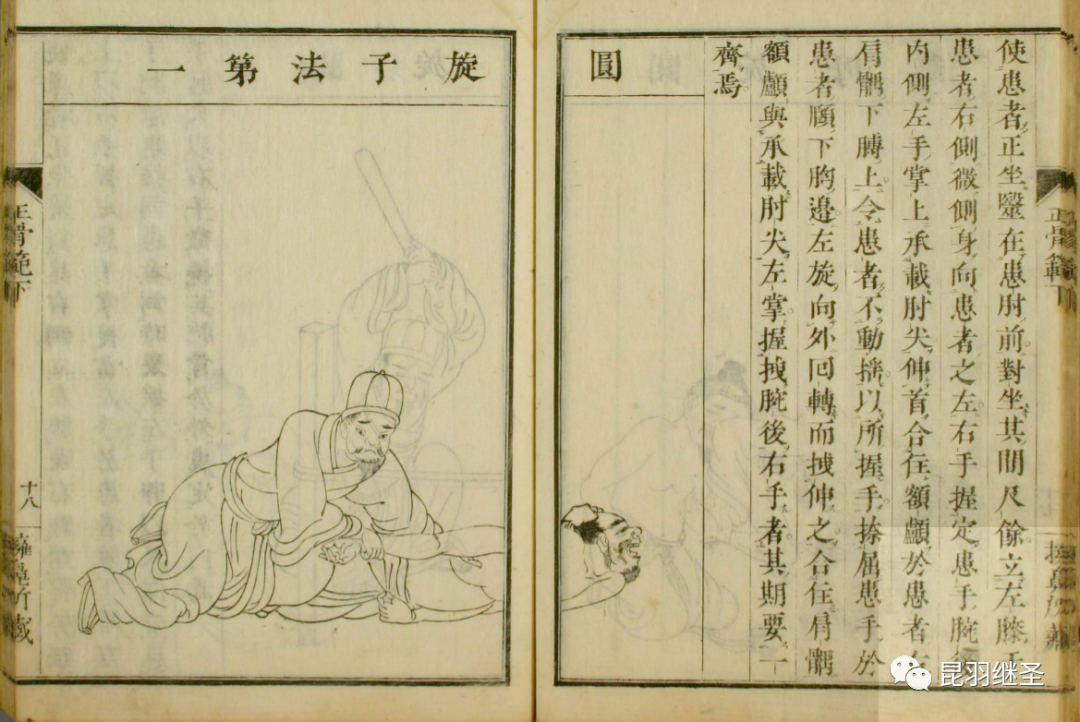 正骨範下
使患者正坐毉在患肘前對坐其間尺餘立左膝于
患者右側微側身向患者之左右手握定患手腕後
內側左手掌上承載肘尖伸首合住額顱於患者右
肩髃下膊上令患者不動搖以所握手捺屈患手於
患者頤下胸邊左旋向外回轉而拽伸之合住肩髃
額顱與承載肘尖左掌握拽腕後右手者其期要一
齊焉
圓
旋子法第一
正骨範下
十八
所藏
昆羽继圣